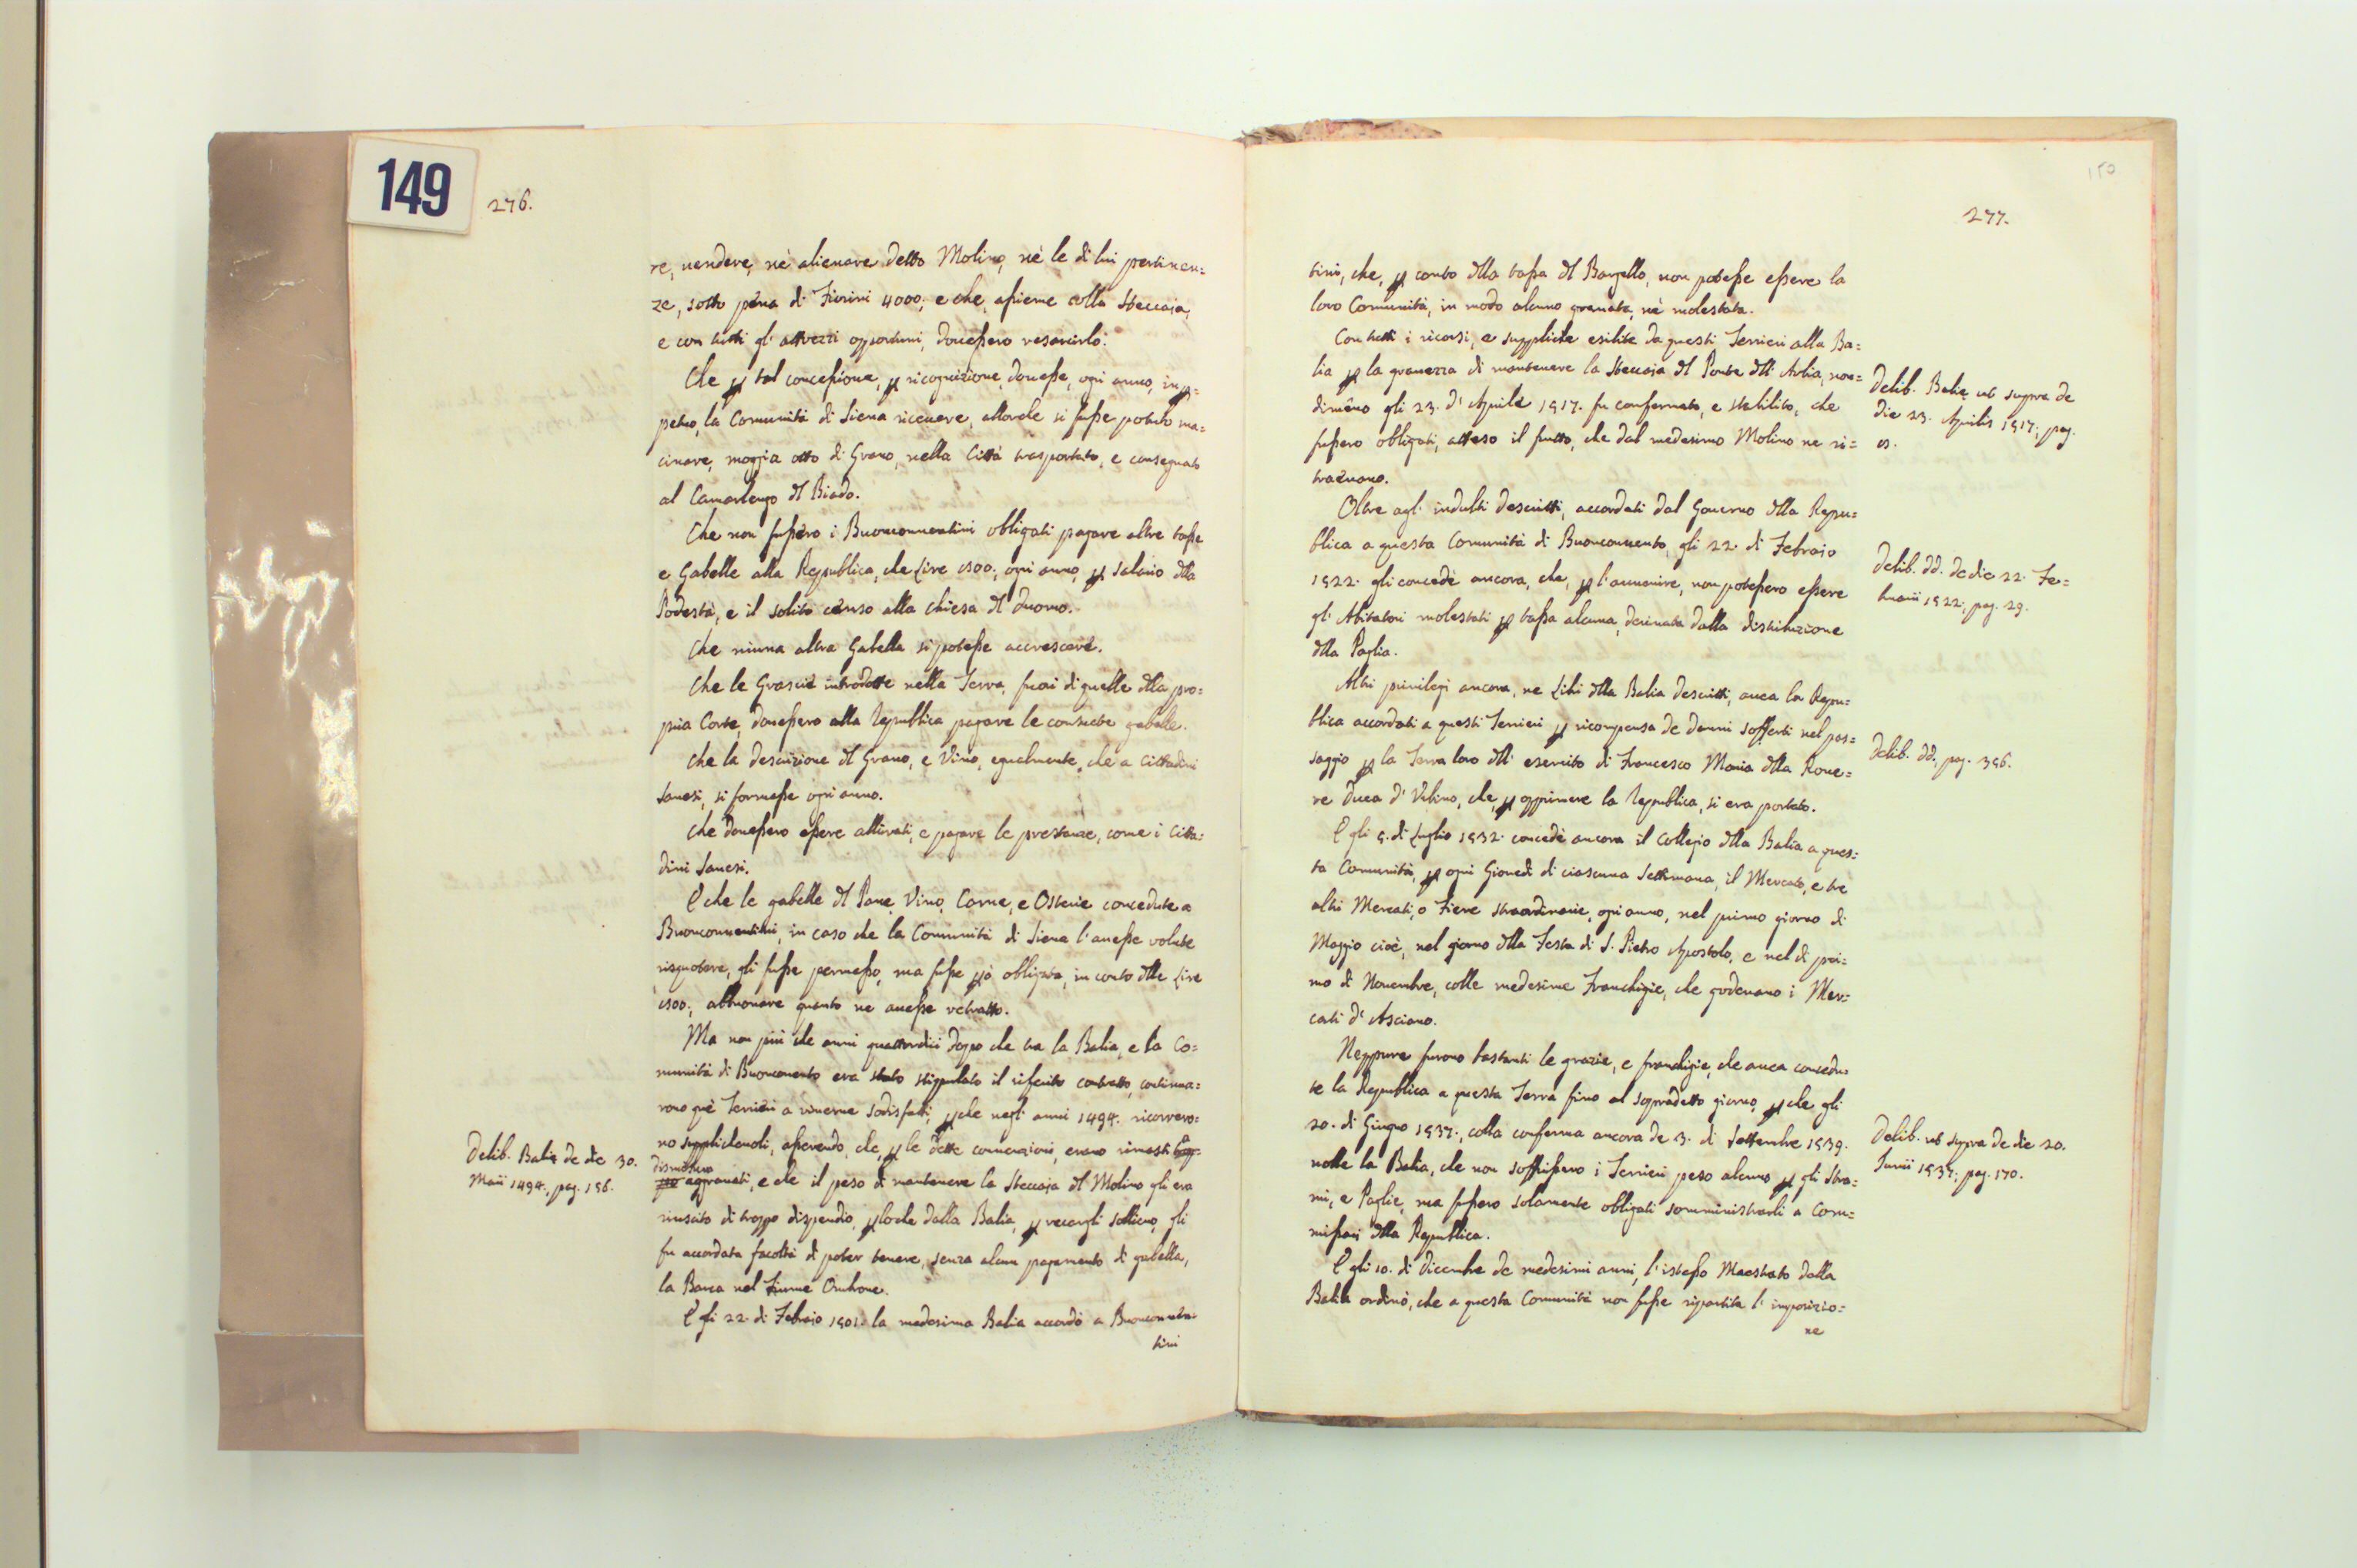 149
276.
re, uendere, nè alienare detto Molino, nè le di lui pertinen=
ze, sotto pena di Fiorini 4000; e che, assieme colla steccaia,
e con tutti gl' attrezzi opportuni, douessero resarcirlo.
Che per tal concessione, per ricognizione, douesse, ogni anno, in per=
petuo, la Comunità di Siena riceuere, allorche si fusse potuto ma=
cinare, moggia otto di Grano, nella Città trasportato, e consegnato
al Camarlengo dl Biado.
Che non fussero i Buonconuentini obligati pagare altre tasse
e Gabelle alla Republica, che Lire 1500; ogni anno, per salario dlla
Podestà, e il solito censo alla chiesa dl duomo.
Che niuna altra Gabella si potesse accrescere.
Che le Grascie introdotte nella Terra, fuori di quelle dlla pro=
pria Corte, douessero alla Republica pagare le consuete gabelle.
Che la descrizione dl Grano, e Vino, egualmente, che a Cittadini
sanesi, si formasse ogni anno.
Che douessero essere allirati, e pagare le prestanze, come i Citta=
dini Sanesi.
E che le gabelle dl Pane, Vino, Carne, e Osterie concedute a
Buonconuentini, in caso che la Comunità di Siena l'auesse volute
risquotere, gli fusse permesso, ma fusse però obligata, in conto dlle Lire
1500; abbuonare quanto ne auesse retratto.
Ma non più che anni quattordici dopo che tra la Balia, e la Co=
munità di Buonconuento era stato stipulato il riferito contratto, continua=
rono què Terrieri a uiuerne sodisfatti; perche negl' anni 1494. ricorrero=
no supplicheuoli, asserendo, che, per le dette conuenzioni, erano rimasti
dismisura
aggrauati, e che il peso di mantenere la steccaia dl Molino gli era
riuscito di troppo dispendio, perloche dalla Balia, per recargli sollieuo, gli
fu accordata facoltà di poter tenere, senza alcun pagamento di gabella,
la Barca nel Fiume Ombrone.
E gli 22. di Febraio 1501. la medesima Balia accordò a Buonconuen=
tini
Delib. Balię de die 30.
Maii 1494., pag. 156.
150
277.
tini, che, per conto dlla tassa dl Bargello, non potesse essere la
loro Comunità, in modo alcuno grauata, nè molestata.
Con tutti i ricorsi, e suppliche esibite da questi Terrieri alla Ba=
lia per la grauezza di mantenere la steccaia dl Ponte dll' Arbia, non=
dimeno gli 23. d' Aprile 1517. fu confermato, e stabilito, che
fussero obligati, atteso il frutto, che dal medesimo Molino ne ri=
traeuano.
Oltre agl' indulti descritti, accordati dal Gouerno dlla Repu=
blica a questa Comunità di Buonconuento, gli 22. di Febraio
1522. gli concedè ancora, che, per l'auuenire, non potessero essere
gl' Abitatori molestati per tassa alcuna, deriuata dalla distribuzione
dlla Paglia.
Altri priuilegi ancora, ne Libri dlla Balia descritti, auea la Repu=
blica accordati a questi Terrieri per ricompensa de danni sofferti nel pas=
saggio per la Terra loro dll' esercito di Francesco Maria dlla Roue=
re Duca d' Vrbino, che, per opprimere la Republica, si era portato.
E gli 5. di Luglio 1532. concedè ancora il Collegio dlla Balia a ques=
ta Comunità, per ogni Giouedì di ciascuna settimana, il Mercato, e tre
altri Mercati, o Fiere straordinarie, ogni anno, nel primo giorno di
Maggio cioè, nel giorno dlla Festa di S. Pietro Apostolo, e nel dì pri=
mo di Nouembre, colle medesime Franchigie, che godeuano i Mer=
cati d' Asciano.
Neppure furono bastanti le grazie, e franchigie, che auea concedu=
te la Republica a questa Terra fino al sopradetto giorno, perche gli
20. di Giugno 1537., colla conferma ancora de 3. di Settembre 1539.
uolle la Balia, che non soffrissero i Terrieri peso alcuno per gli stra=
mi, e Paglie, ma fussero solamente obligati somministrarli a Com=
missari dlla Republica.
E gli 10. di Dicembre de medesimi anni, l'istesso Maestrato dalla
Balia ordinò, che a questa Comunità non fusse ripartita l'imposizio=
ne
Delib. Balię ut supra de
die 23. Aprilis 1517; pag.
Delib. dd. de die 22. Fe=
bruarii 1522; pag. 29.
Delib. dd., pag. 356.
Delib. ut supra de die 20.
Junii 1537; pag. 170.